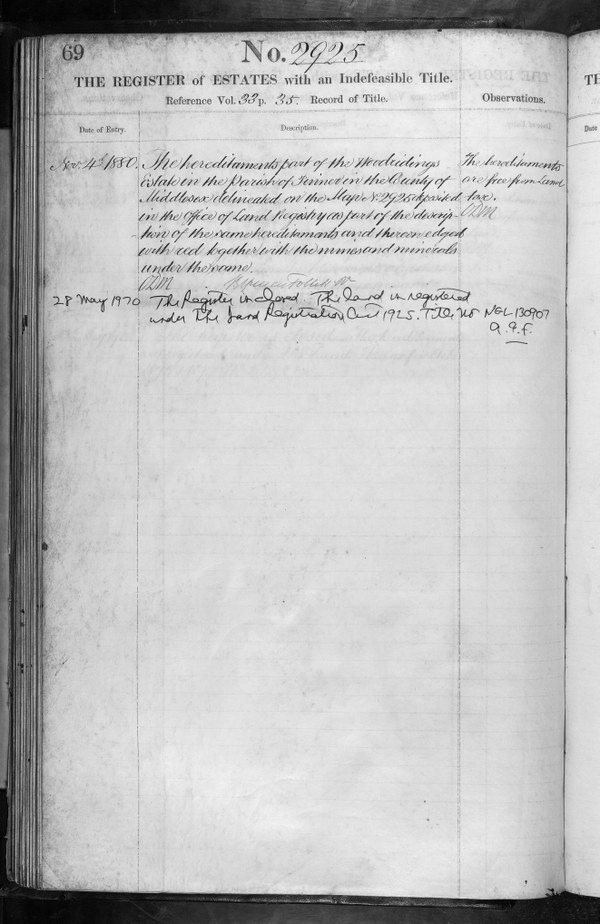 69
No. 2925
THE REGISTER of ESTATES with an Indefeasible Title.
Reference Vol. 33 p. 35. Record of Title. Observations.
Date of Entry. Description.
Nov. 4th 1880. The hereditaments part of the Woodridings
Estate in the Parish of Pinner in the County of
Middlesex delineated on the Map No. 2925 deposited
in the Office of Land Registry as part of the descrip-
tion of the same hereditaments and thereon edged
with red together with the mines and minerals
under the same.
The hereditaments
are free from Land
tax.
28 May 1970 The Register is closed. The land is registered
under the Land Registration Act 1925. Title No NGL 130907